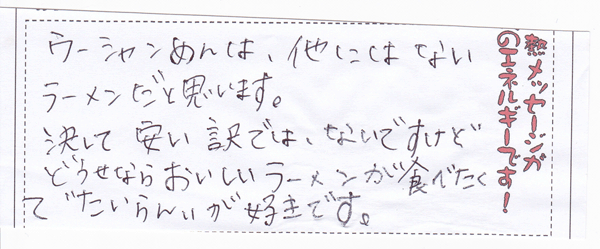 熱メッセージが
のエネルギーです!
ウーシャンめんは、他にはない
ラーメンだと思います。
決して安い訳では、ないですけど
どうせならおいしいラーメンが食べたく
て
が好きです。